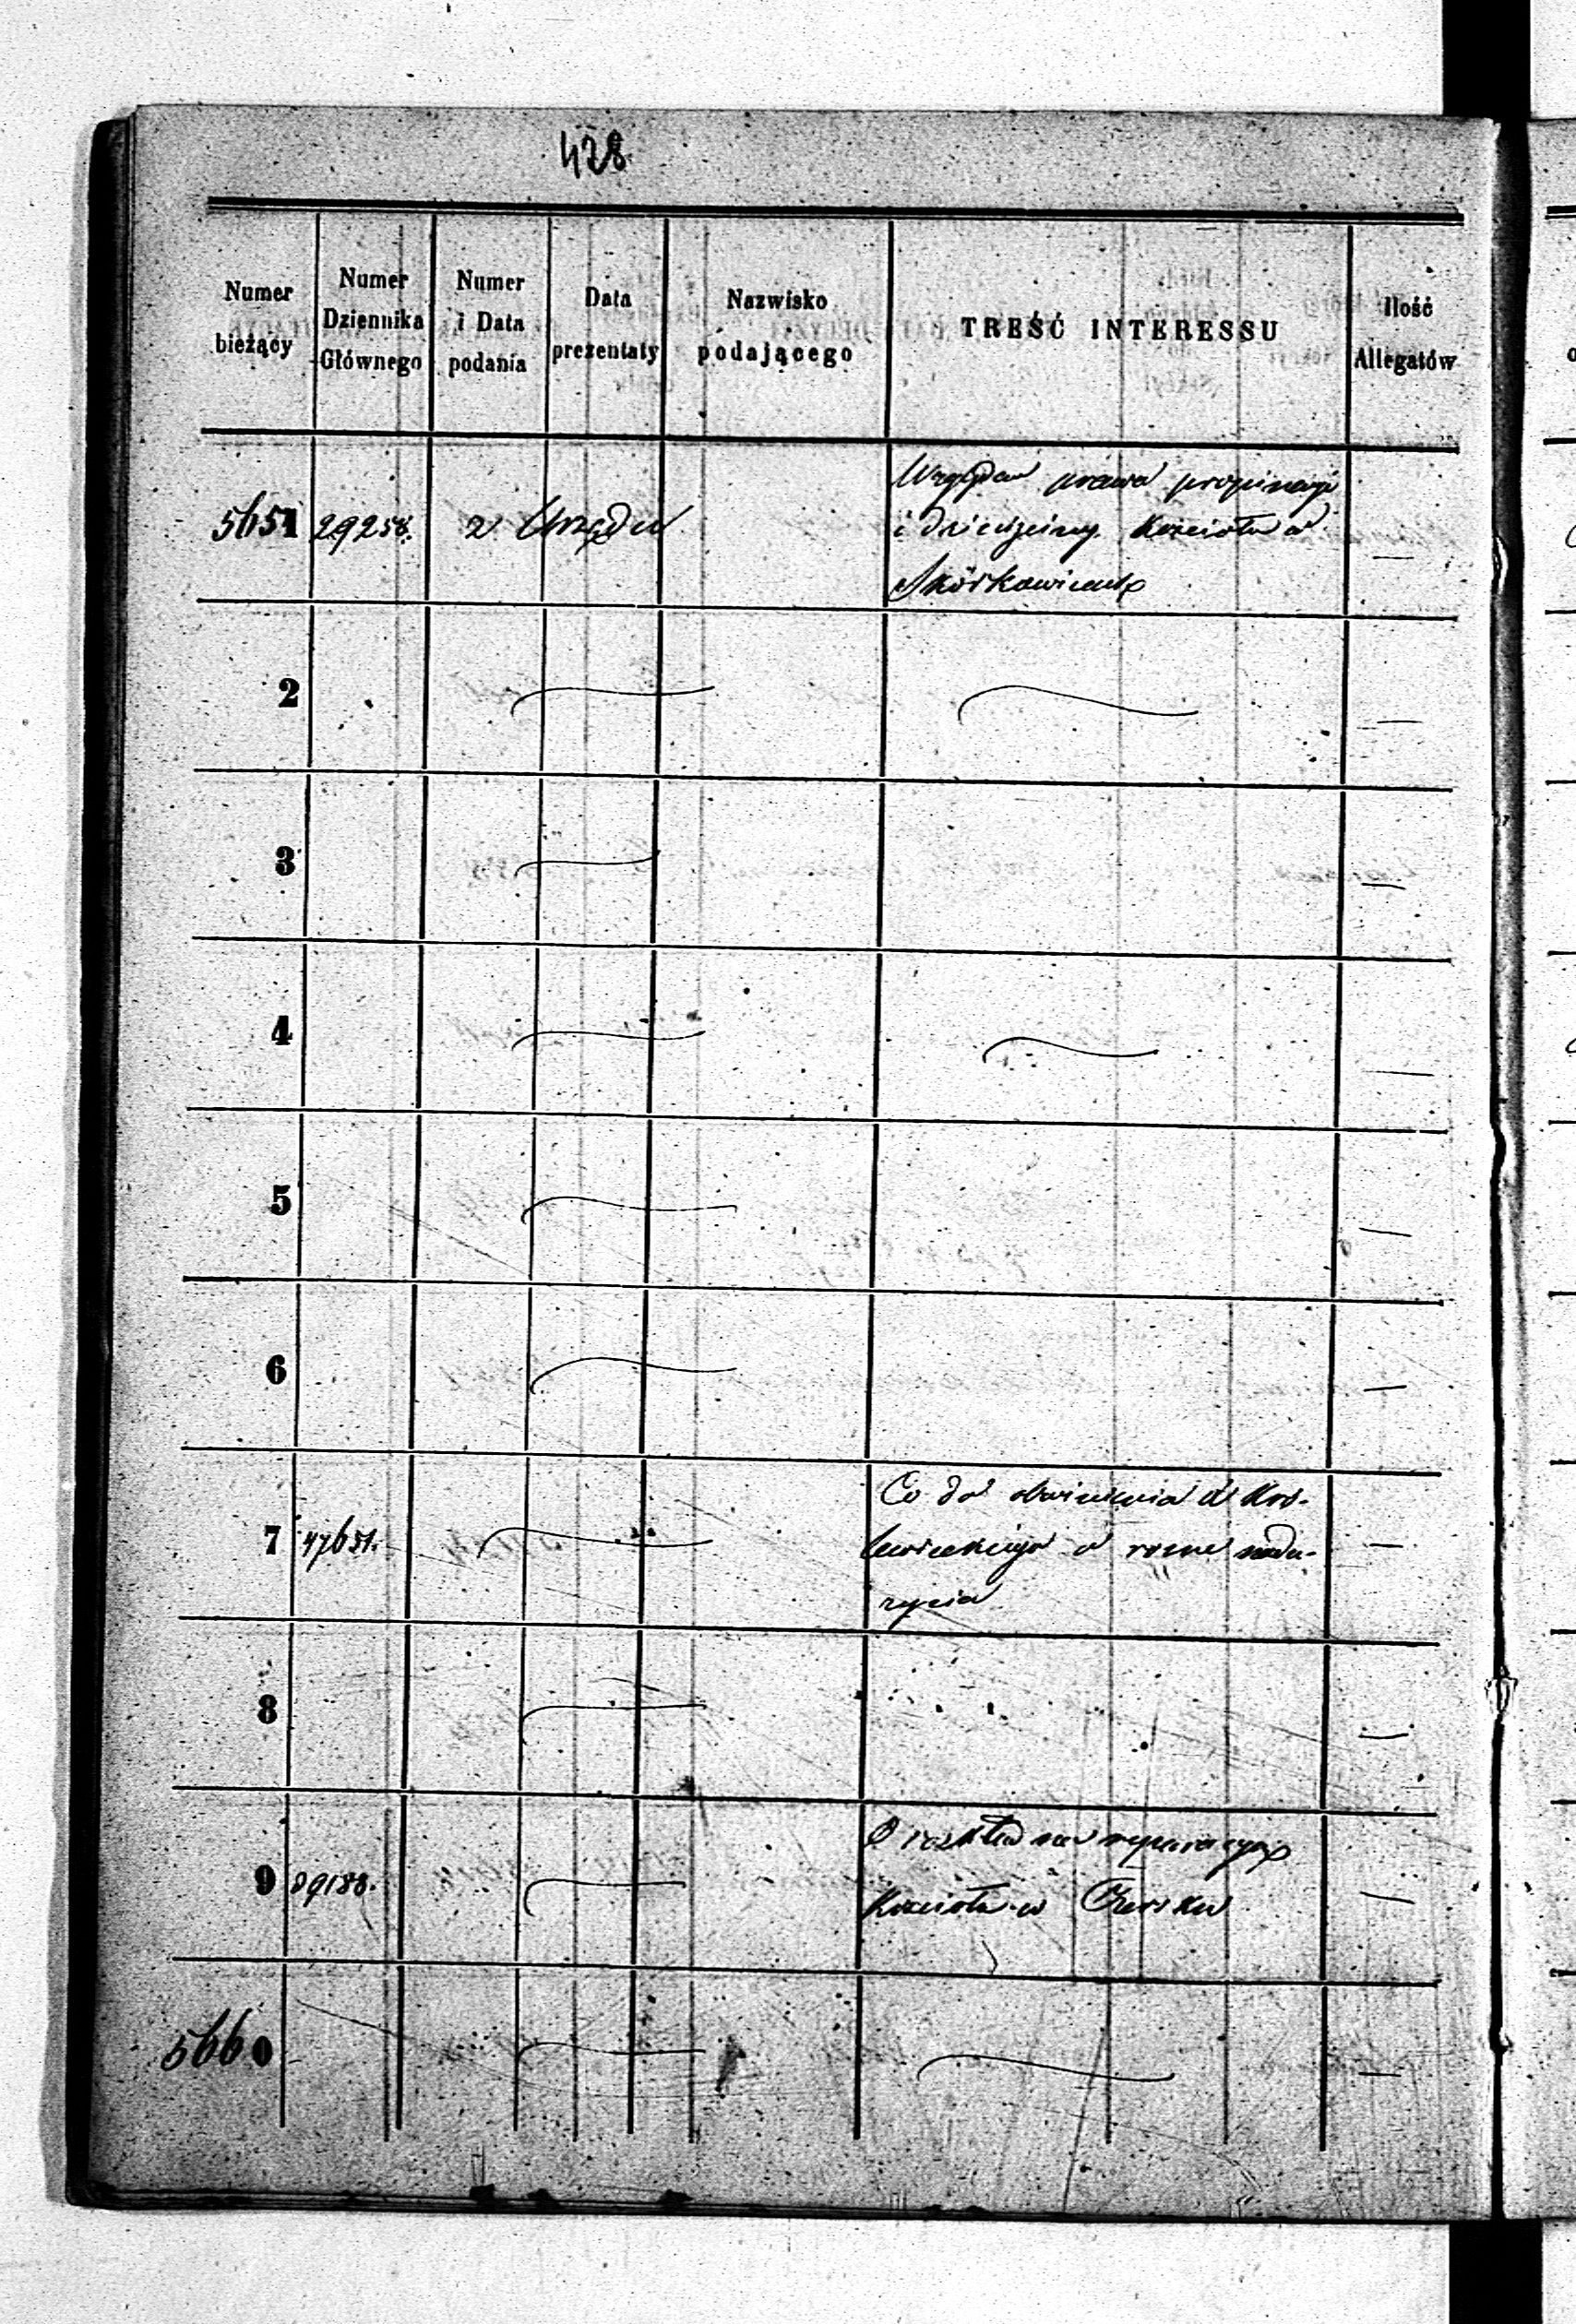 428.
Numer bieżący
Numer Dziennika Głównego
Numer i Data podania
Data prezentaty
Nazwisko podającego
TREŚĆ INTERESSU
Ilość Allegatów
5651 29258. z Urzędu Względem prawa propinacyi
i dziesięciny Kościoła w
Skórkowicach —
2 —
3 —
4 —
5 —
6 —
7 47651. Co do obwinienia
o rożne nadu-
życia —
8 —
9 89188. O rozkład na reparacyą
Kościoła w Czersku —
5660 —